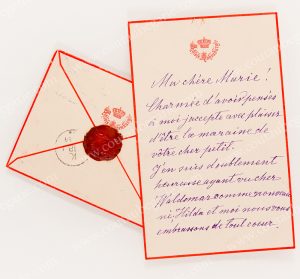 Ma chère Marie!
Charmée d'avoir pensée
à moi j'accepte avec plaisir
d'être la maraine de
vôtre cher petit.
J'en suis doublement
heureuse ayant vu cher
Waldemar comme nouveau
né, Hilda et moi nous vous
embrassons de tout coeur.